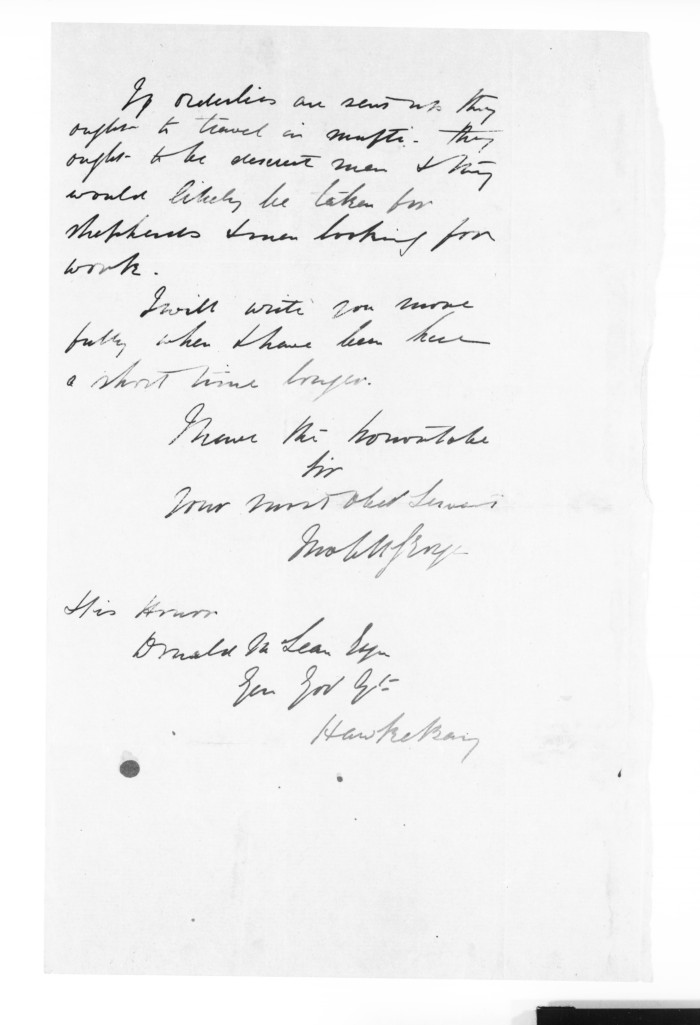 If orderlies are sent up they
ought to travel in mufti. they
ought to be discreet men & they
would likely be taken for
shepherds & men looking for
work.
I will write you more
fully when I have been here
a short time longer.
I have the honor to be
Sir
Your most obed Servant
His Honor
Donald McLean Esqr
Gen Gov Agt
Hawke Bay